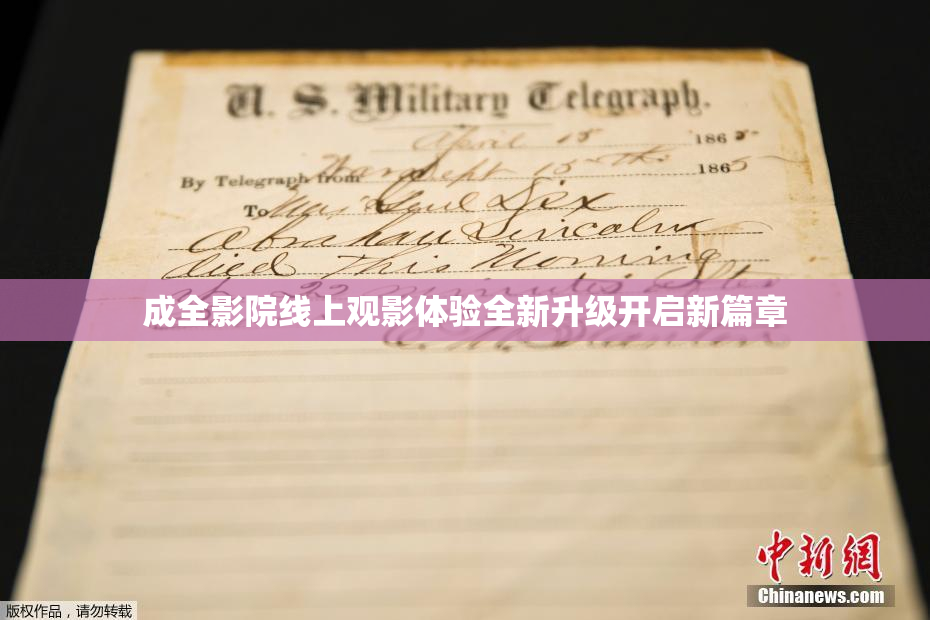 U. S. Military Telegraph.
April 15 1865
By Telegraph from War Dept 15th 1865
To Maj Genl Dix
Abraham Lincoln
died This Morning
22 minutes after
成全影院线上观影体验全新升级开启新篇章
E. M. Stanton
中新网
Chinanews.com
版权作品，请勿转载